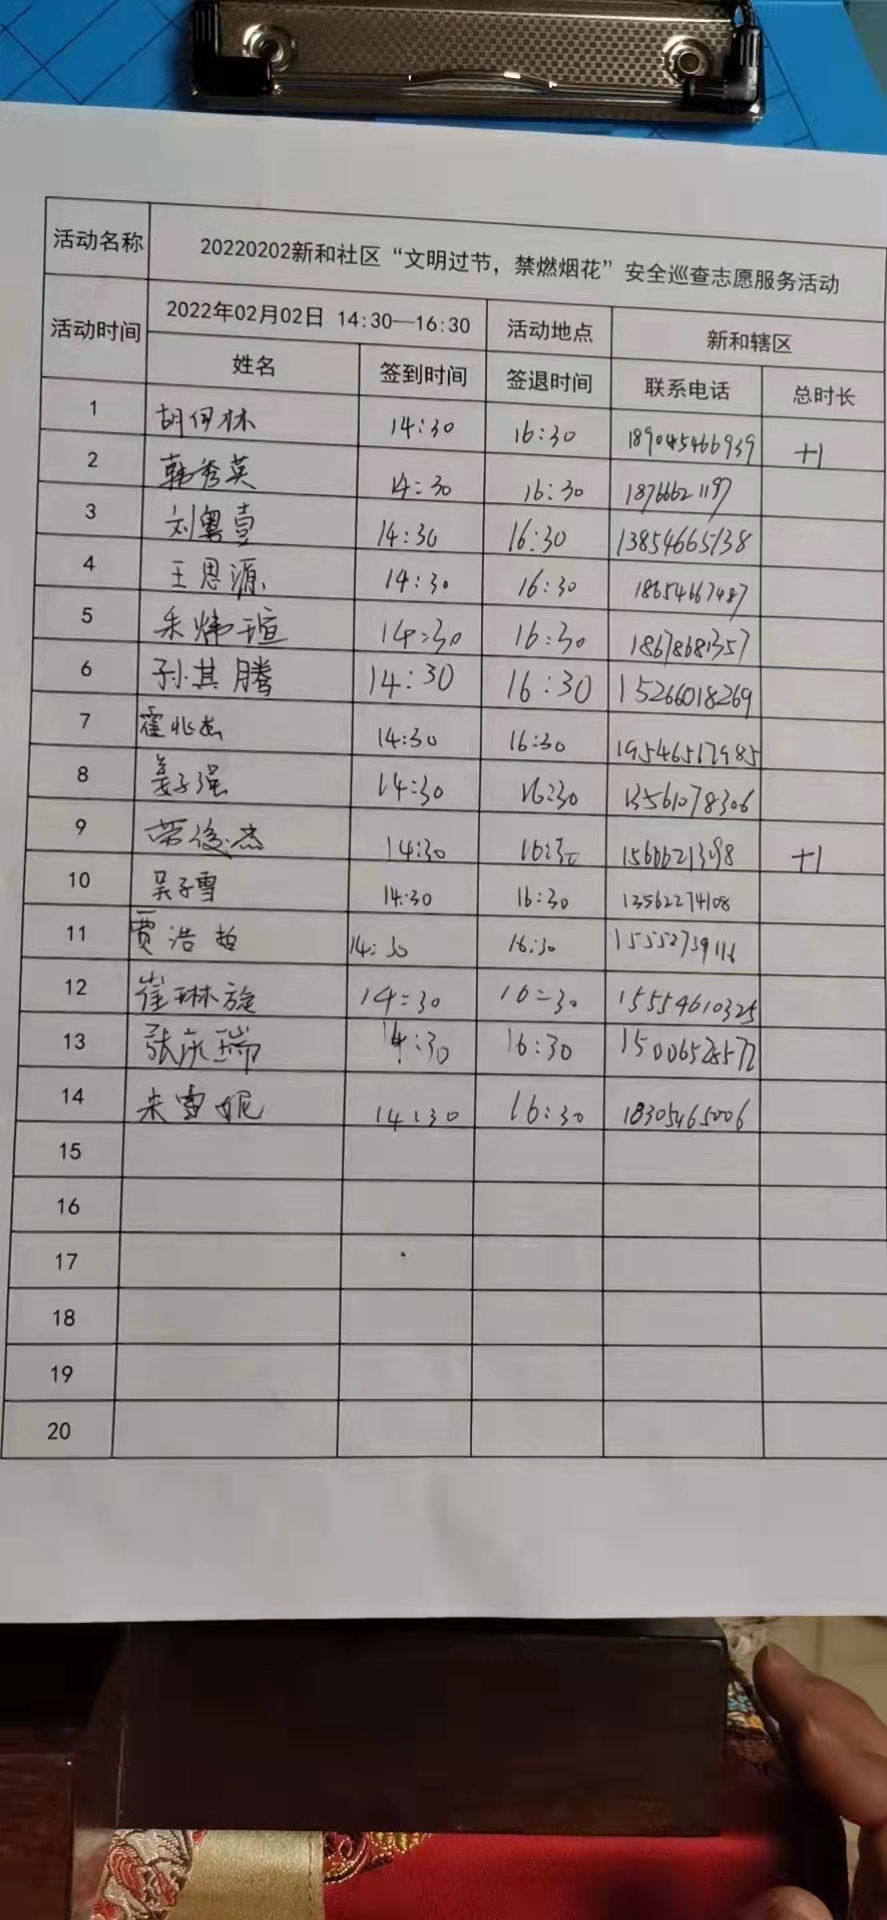 活动名称 20220202新和社区“文明过节，禁燃烟花”安全巡查志愿服务活动
活动时间 2022年02月02日 14:30—16:30 活动地点 新和辖区
姓名 签到时间 签退时间 联系电话 总时长
1 胡伊林 14:30 16:30 +1
2 韩秀英 14:30 16:30 18766621197
3 刘粤壹 14:30 16:30 13854665138
4 王思源 14:30 16:30 18654667487
5 朱炜瑄 14:30 16:30 18678681357
6 孙其腾 14:30 16:30 15266018269
7 霍兆 14:30 16:30 19546512985
8 姜子强 14:30 16:30 13561078306
9 荣俊杰 14:30 16:30 15606621398 +1
10 吴子雪 14:30 16:30 13562274108
11 贾浩哲 14:30 16:30 15552739116
12 崔琳旋 14:30 16:30 15554610325
13 张庆瑞 14:30 16:30 15006528572
14 朱雪妮 14:30 16:30 18305465006
15
16
17
18
19
20